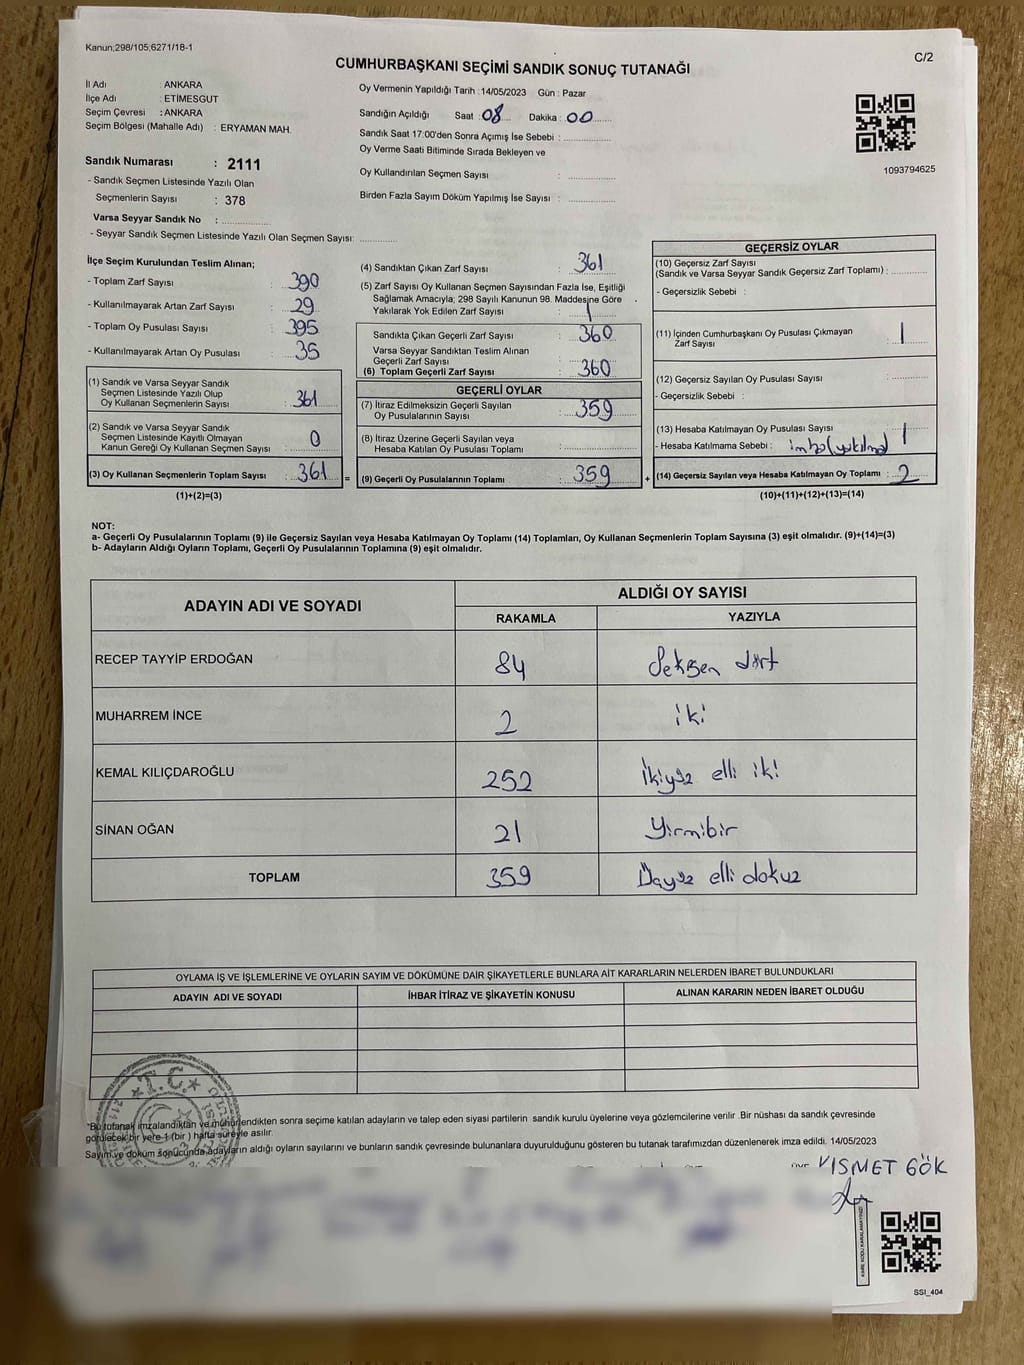 Kanun;298/105;6271/18-1
C/2
CUMHURBAŞKANI SEÇİMİ SANDIK SONUÇ TUTANAĞI
İl Adı : ANKARA
İlçe Adı : ETİMESGUT
Seçim Çevresi : ANKARA
Seçim Bölgesi (Mahalle Adı) : ERYAMAN MAH.
Sandık Numarası : 2111
- Sandık Seçmen Listesinde Yazılı Olan
Seçmenlerin Sayısı : 378
Varsa Seyyar Sandık No :
- Seyyar Sandık Seçmen Listesinde Yazılı Olan Seçmen Sayısı:
Oy Vermenin Yapıldığı Tarih : 14/05/2023 Gün : Pazar
Sandığın Açıldığı Saat : 08 Dakika : 00
Sandık Saat 17:00'den Sonra Açımış İse Sebebi :
Oy Verme Saati Bitiminde Sırada Bekleyen ve
Oy Kullandırılan Seçmen Sayısı :
Birden Fazla Sayım Döküm Yapılmış İse Sayısı :
1093794625
İlçe Seçim Kurulundan Teslim Alınan;
- Toplam Zarf Sayısı : 390
- Kullanılmayarak Artan Zarf Sayısı : 29
- Toplam Oy Pusulası Sayısı : 395
- Kullanılmayarak Artan Oy Pusulası : 35
(1) Sandık ve Varsa Seyyar Sandık
Seçmen Listesinde Yazılı Olup
Oy Kullanan Seçmenlerin Sayısı : 361
(2) Sandık ve Varsa Seyyar Sandık
Seçmen Listesinde Kayıtlı Olmayan
Kanun Gereği Oy Kullanan Seçmen Sayısı : 0
(3) Oy Kullanan Seçmenlerin Toplam Sayısı : 361 =
(1)+(2)=(3)
(4) Sandıktan Çıkan Zarf Sayısı : 361
(5) Zarf Sayısı Oy Kullanan Seçmen Sayısından Fazla İse, Eşitliği
Sağlamak Amacıyla; 298 Sayılı Kanunun 98. Maddesine Göre
Yakılarak Yok Edilen Zarf Sayısı : 1
Sandıkta Çıkan Geçerli Zarf Sayısı : 360
Varsa Seyyar Sandıktan Teslim Alınan
Geçerli Zarf Sayısı :
(6) Toplam Geçerli Zarf Sayısı : 360
GEÇERLİ OYLAR
(7) İtiraz Edilmeksizin Geçerli Sayılan
Oy Pusulalarının Sayısı : 359
(8) İtiraz Üzerine Geçerli Sayılan veya
Hesaba Katılan Oy Pusulası Toplamı :
(9) Geçerli Oy Pusulalarının Toplamı : 359 +
GEÇERSİZ OYLAR
(10) Geçersiz Zarf Sayısı
(Sandık ve Varsa Seyyar Sandık Geçersiz Zarf Toplamı) :
- Geçersizlik Sebebi :
(11) İçinden Cumhurbaşkanı Oy Pusulası Çıkmayan
Zarf Sayısı : 1
(12) Geçersiz Sayılan Oy Pusulası Sayısı :
- Geçersizlik Sebebi :
(13) Hesaba Katılmayan Oy Pusulası Sayısı : 1
- Hesaba Katılmama Sebebi : imha(yakılma)
(14) Geçersiz Sayılan veya Hesaba Katılmayan Oy Toplamı : 2
(10)+(11)+(12)+(13)=(14)
NOT:
a- Geçerli Oy Pusulalarının Toplamı (9) ile Geçersiz Sayılan veya Hesaba Katılmayan Oy Toplamı (14) Toplamları, Oy Kullanan Seçmenlerin Toplam Sayısına (3) eşit olmalıdır. (9)+(14)=(3)
b- Adayların Aldığı Oyların Toplamı, Geçerli Oy Pusulalarının Toplamına (9) eşit olmalıdır.
ADAYIN ADI VE SOYADI ALDIĞI OY SAYISI
RAKAMLA YAZIYLA
RECEP TAYYİP ERDOĞAN 84 Seksen dört
MUHARREM İNCE 2 iki
KEMAL KILIÇDAROĞLU 252 İkiyüz elli iki
SİNAN OĞAN 21 Yirmibir
TOPLAM 359 Üçyüz elli dokuz
OYLAMA İŞ VE İŞLEMLERİNE VE OYLARIN SAYIM VE DÖKÜMÜNE DAİR ŞİKAYETLERLE BUNLARA AİT KARARLARIN NELERDEN İBARET BULUNDUKLARI
ADAYIN ADI VE SOYADI İHBAR İTİRAZ VE ŞİKAYETİN KONUSU ALINAN KARARIN NEDEN İBARET OLDUĞU
★ T.C. ★
"Bu tutanak imzalandıktan ve mühürlendikten sonra seçime katılan adayların ve talep eden siyasi partilerin sandık kurulu üyelerine veya gözlemcilerine verilir .Bir nüshası da sandık çevresinde
görülecek bir yere 1 (bir ) hafta süreyle asılır.
Sayım ve döküm sonucunda adayların aldığı oyların sayılarını ve bunların sandık çevresinde bulunanlara duyurulduğunu gösteren bu tutanak tarafımızdan düzenlenerek imza edildi. 14/05/2023
KISMET GÖK
KARE KODU KARALAMAYINIZ!
SSI_404